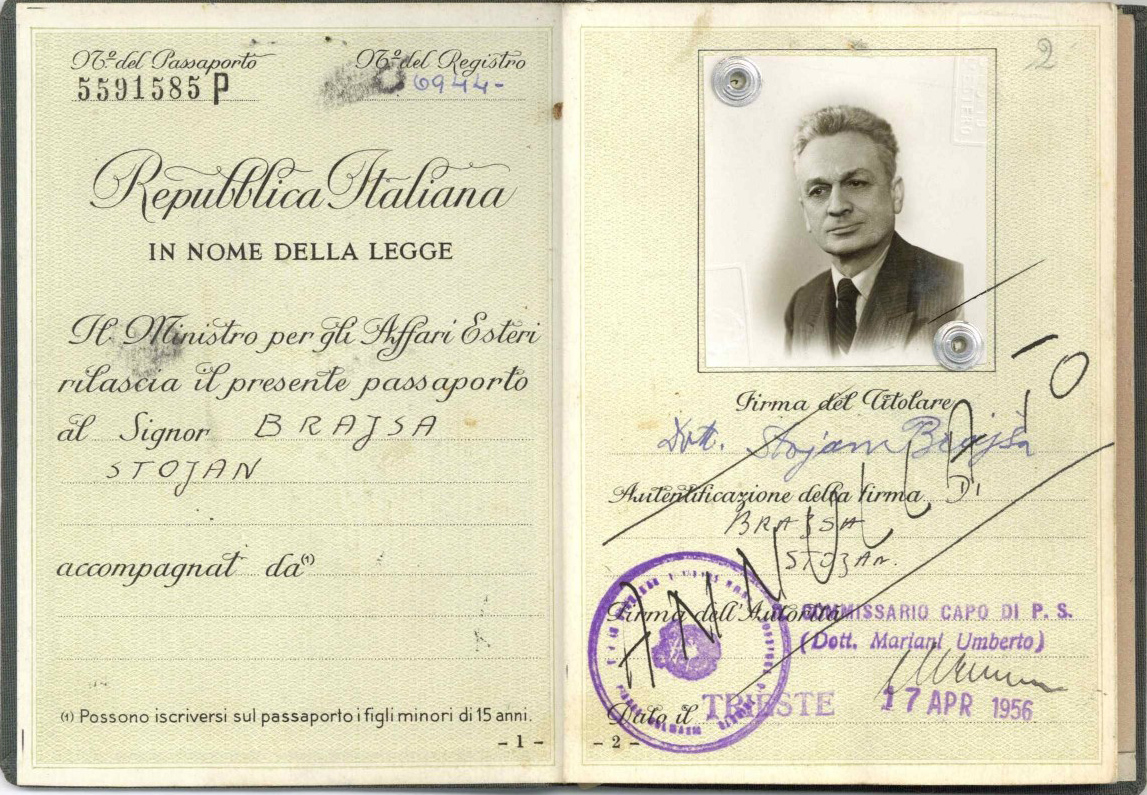 Nº del Passaporto
5591585 P
Nº del Registro
6944-
Repubblica Italiana
IN NOME DELLA LEGGE
Il Ministro per gli Affari Esteri
rilascia il presente passaporto
al Signor BRAJSA
STOJAN
accompagnat da (1)
(1) Possono iscriversi sul passaporto i figli minori di 15 anni.
- 1 -
2
ESTERO
Firma del Titolare
Dott. Stojan Brajša
Autentificazione della firma Di
BRAJSA
STOJAN.
ANNULLATO
Firma dell'Autorità
COMMISSARIO CAPO DI P. S.
(Dott. Mariani Umberto)
Dato il TRIESTE 17 APR 1956
- 2 -